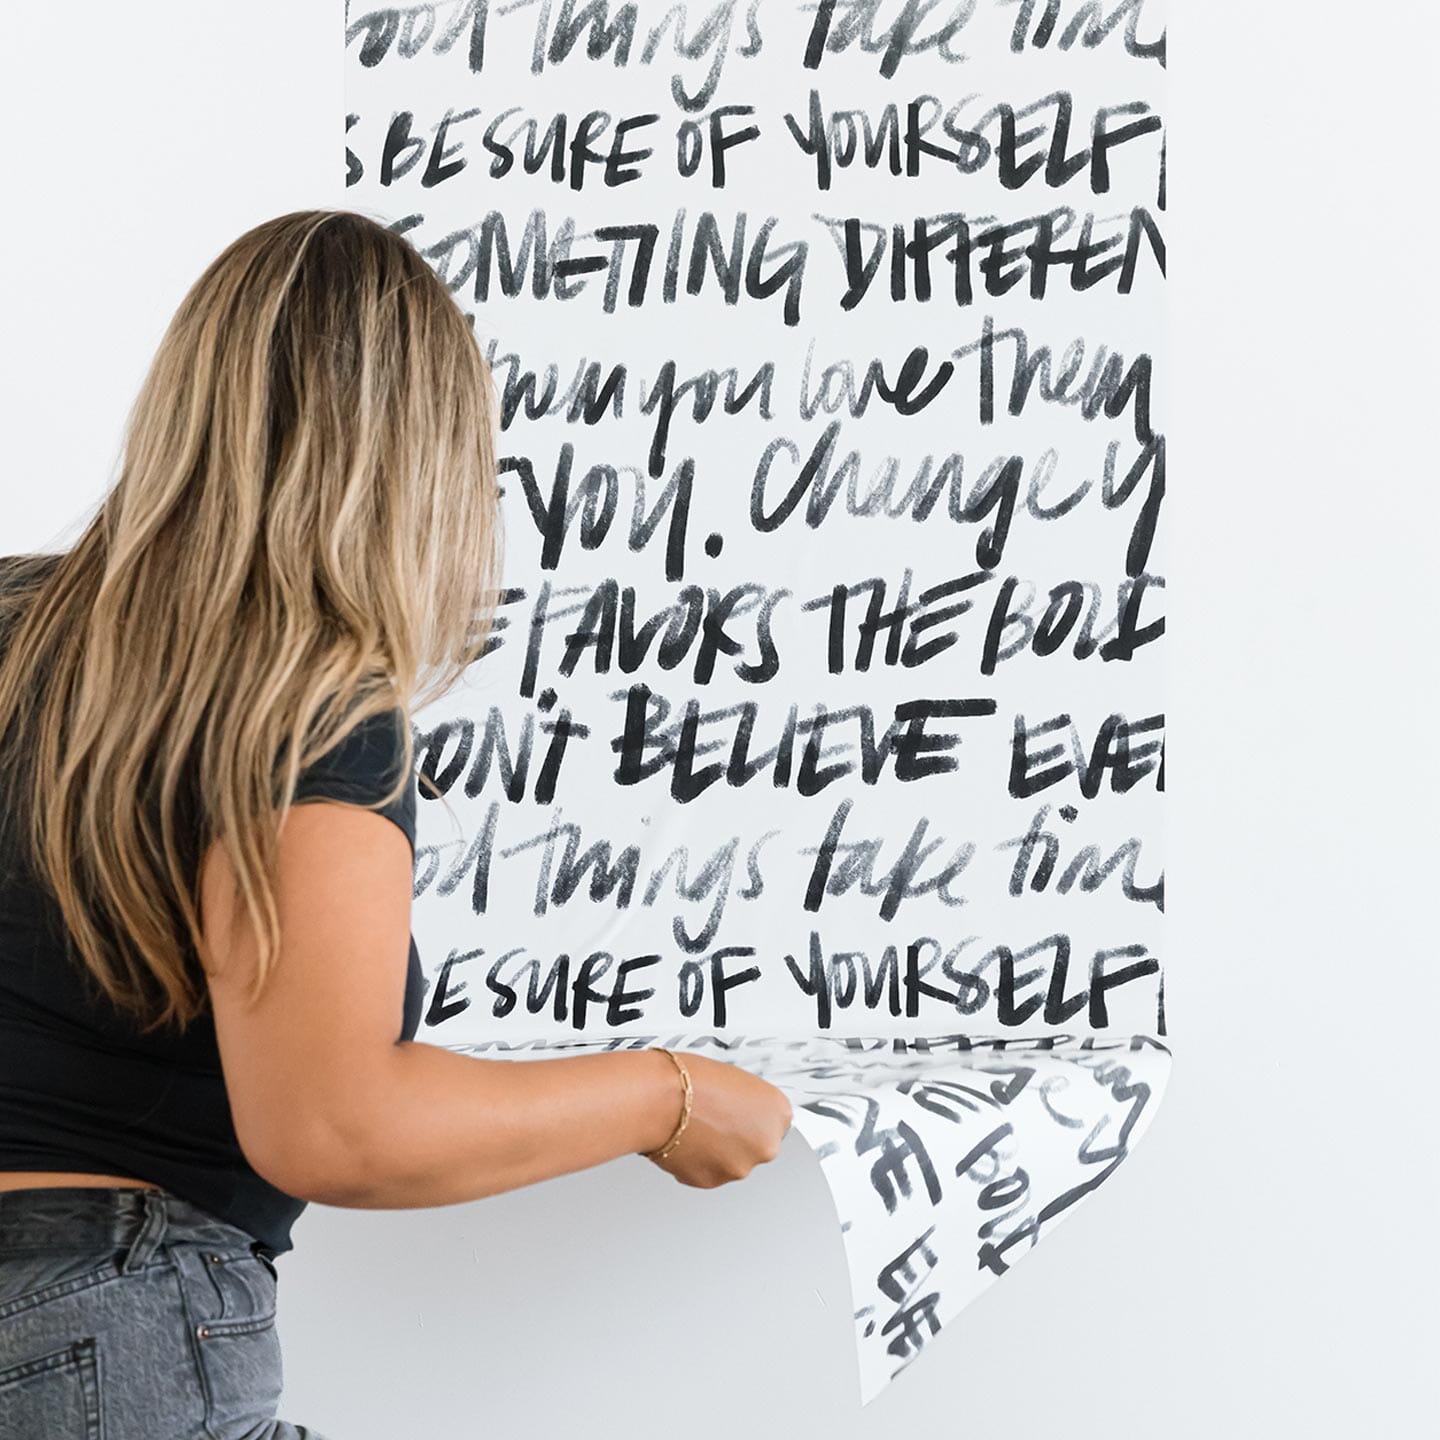 ood things take tim
S BE SURE OF YOURSELF
SOMETHING DIFFEREN
them you love them
you. Change y
E FAVORS THE BOLD
DON'T BELIEVE EVE
ood things take tim
BE SURE OF YOURSELF
SOMETHING DIFFEREN